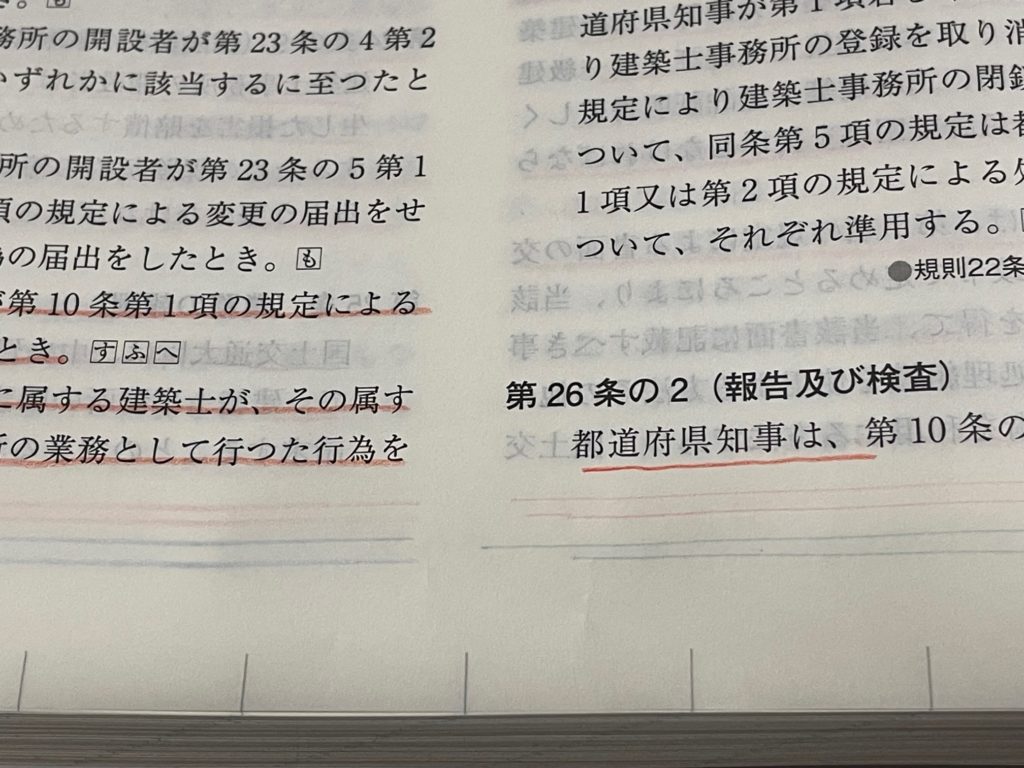 務所の開設者が第23条の4第2
いずれかに該当するに至つたと
所の開設者が第23条の5第1
項の規定による変更の届出をせ
の届出をしたとき。も
が第10条第1項の規定による
とき。すふへ
に属する建築士が、その属す
所の業務として行つた行為を
道府県知事が第1項
り建築士事務所の登録を取り消
規定により建築士事務所の閉鎖
ついて、同条第5項の規定は
1項又は第2項の規定による
ついて、それぞれ準用する。
●規則22条
第26条の2（報告及び検査）
都道府県知事は、第10条の